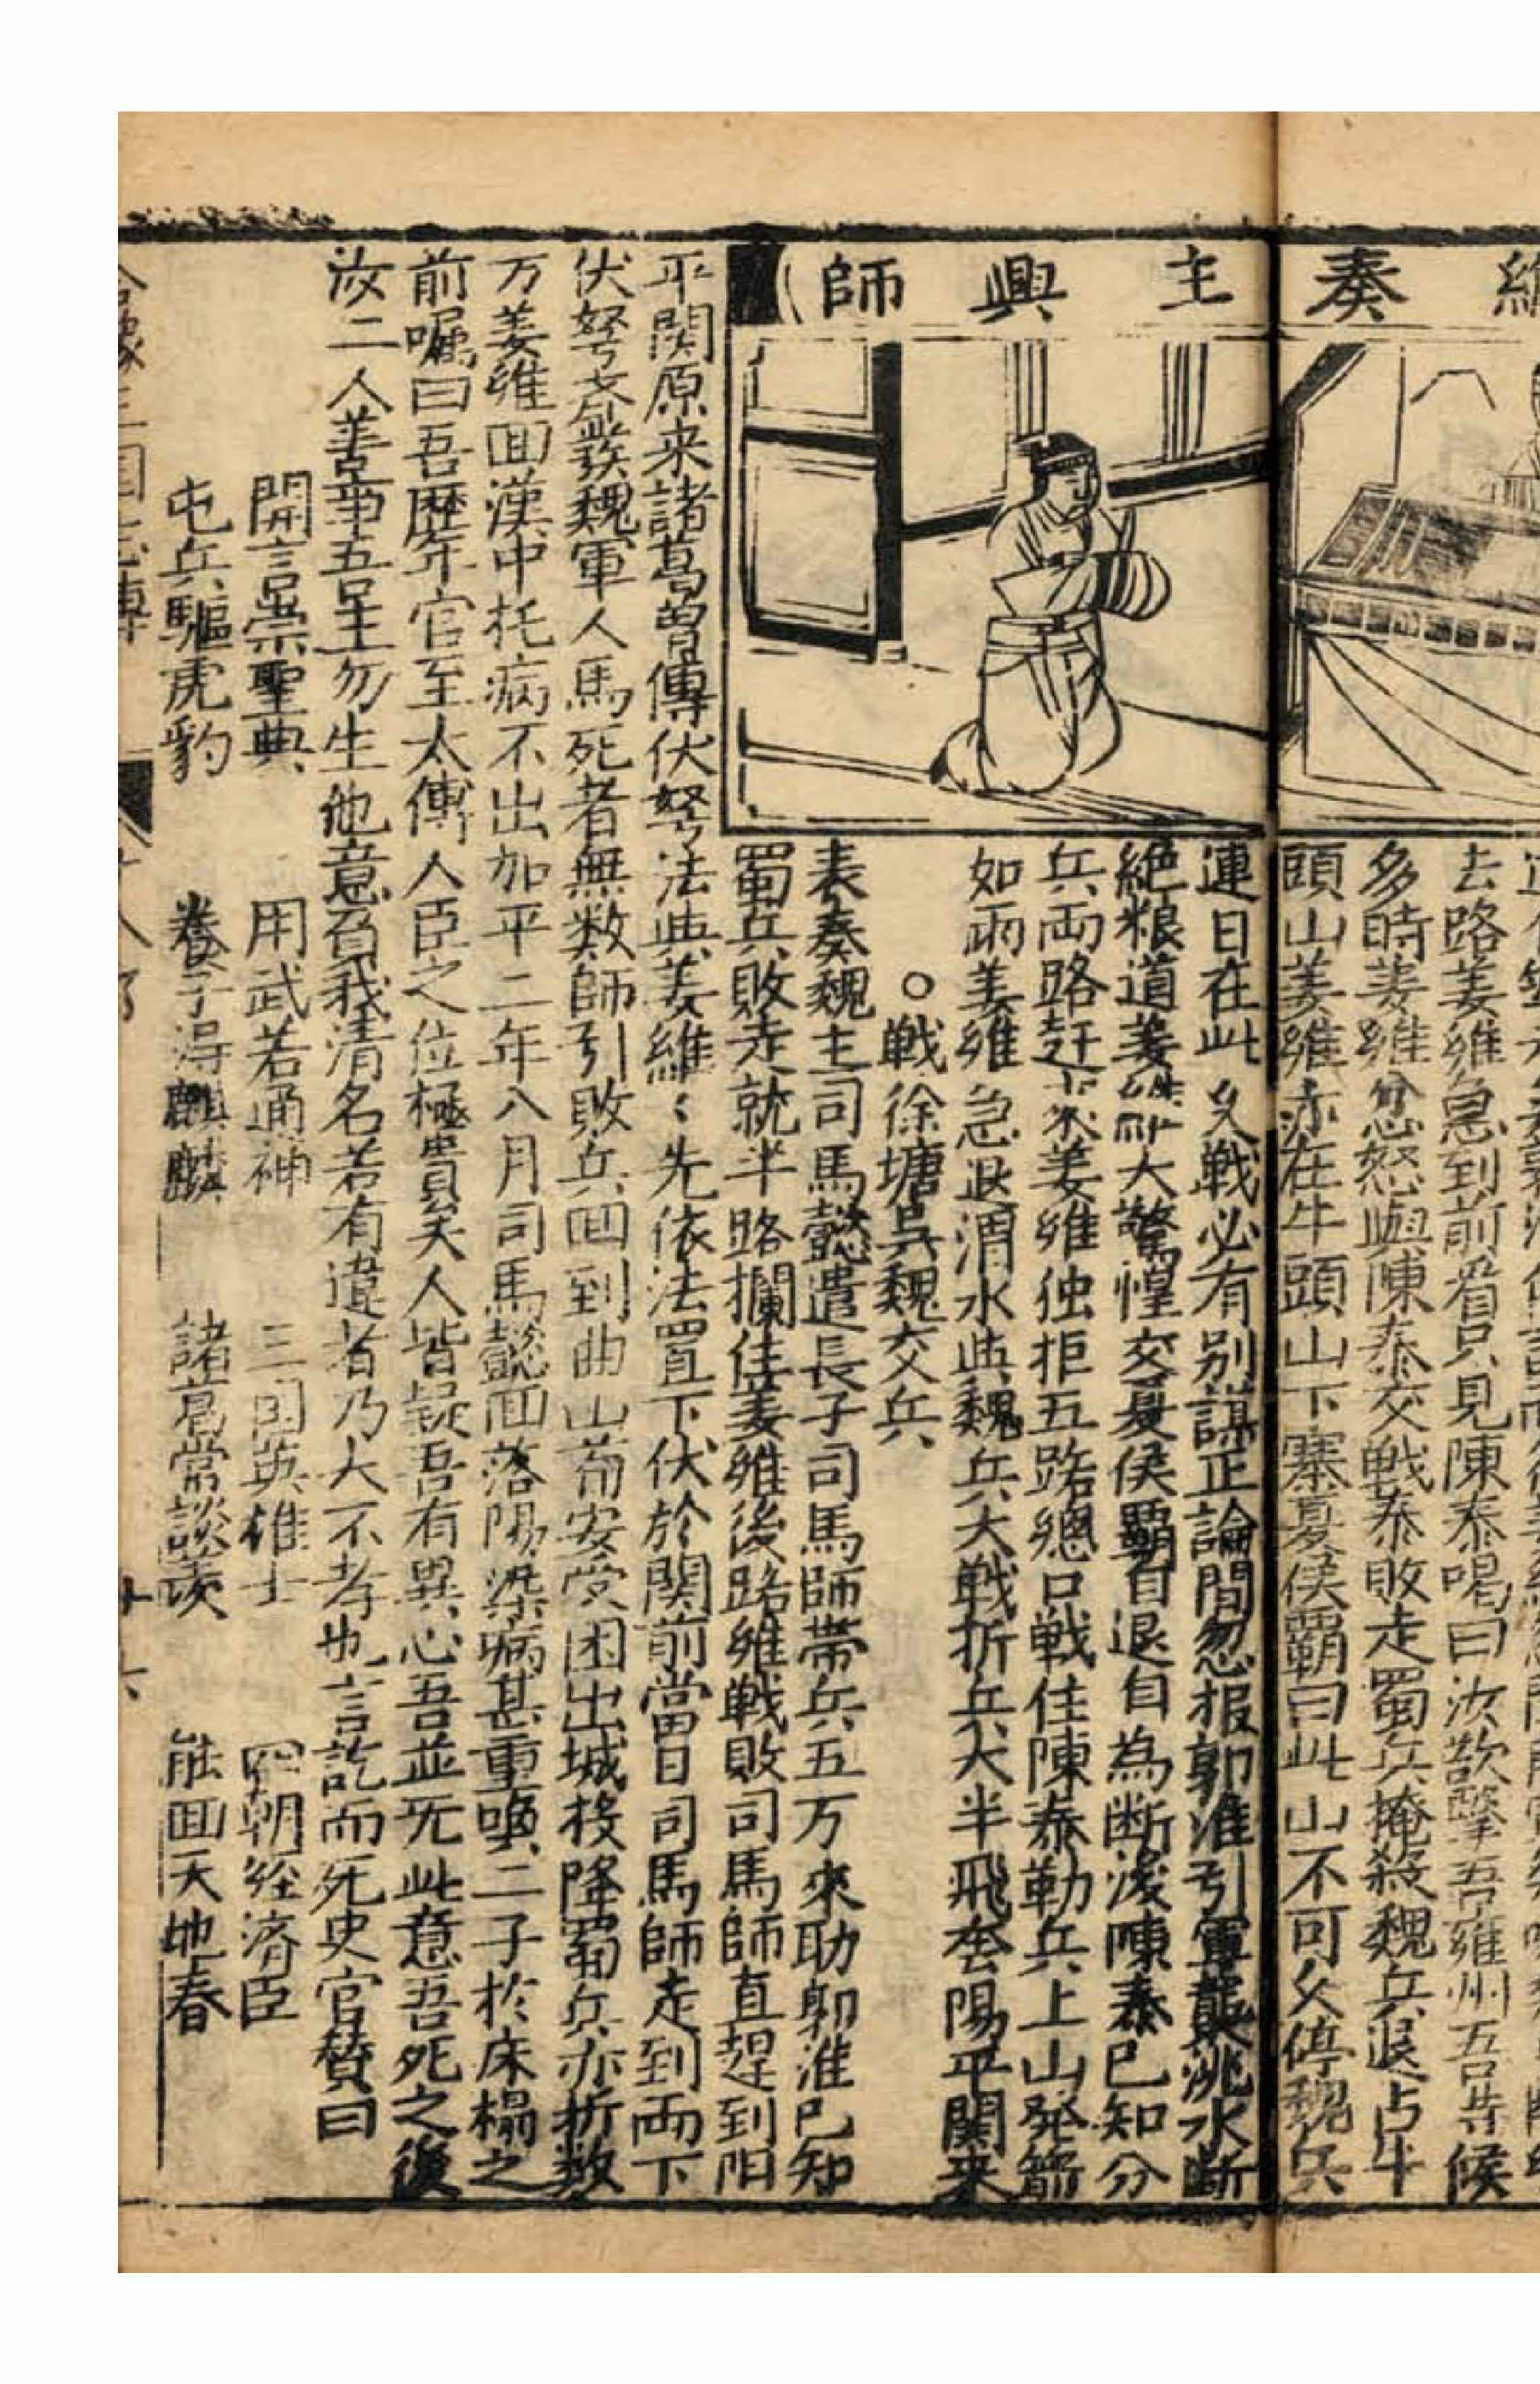 維奏主興師
去路姜維急到前看只見陳泰喝曰汝欲擊吾雍州吾等候
多時姜維忿怒與陳泰交戦泰敗走蜀兵掩殺魏兵退占牛
頭山姜維亦在牛頭山下寨夏侯覇曰此山不可久停魏兵
連日在此久戦必有别謀正論間忽报郭淮引軍襲洮水断
絶粮道姜維大驚惶交夏侯覇自退自為断後陳泰已知分
兵両路赶来姜維独拒五路總口戦住陳泰勒兵上山発箭
如雨姜維急退渭水與魏兵大戦折兵大半飛奔陽平関来
○戦徐塘吳魏交兵
表奏魏主司馬懿遣長子司馬師帯兵五万來助郭淮已知
蜀兵敗走就半路攔住姜維後路維戦敗司馬師直趕到阳
平関原来諸葛曽傳伏弩法與姜維〻先依法置下伏於関前當日司馬師走到両下
伏弩齐發魏軍人馬死者無数師引敗兵回到曲山苟安受困出城投降蜀兵亦折数
万姜維回漢中托病不出加平二年八月司馬懿回落陽染病甚重喚二子於床榻之
前嘱曰吾歷年官至太傅人臣之位極貴矣人皆疑吾有異心吾並无此意吾死之後
汝二人善事吾主勿生他意負我清名若有違者乃大不孝也言訖而死史官賛曰
開言崇聖典 用武若通神 三国英雄士 四朝経濟臣
屯兵驅虎豹 養子得麒麟 諸葛常談羡 能回天地春